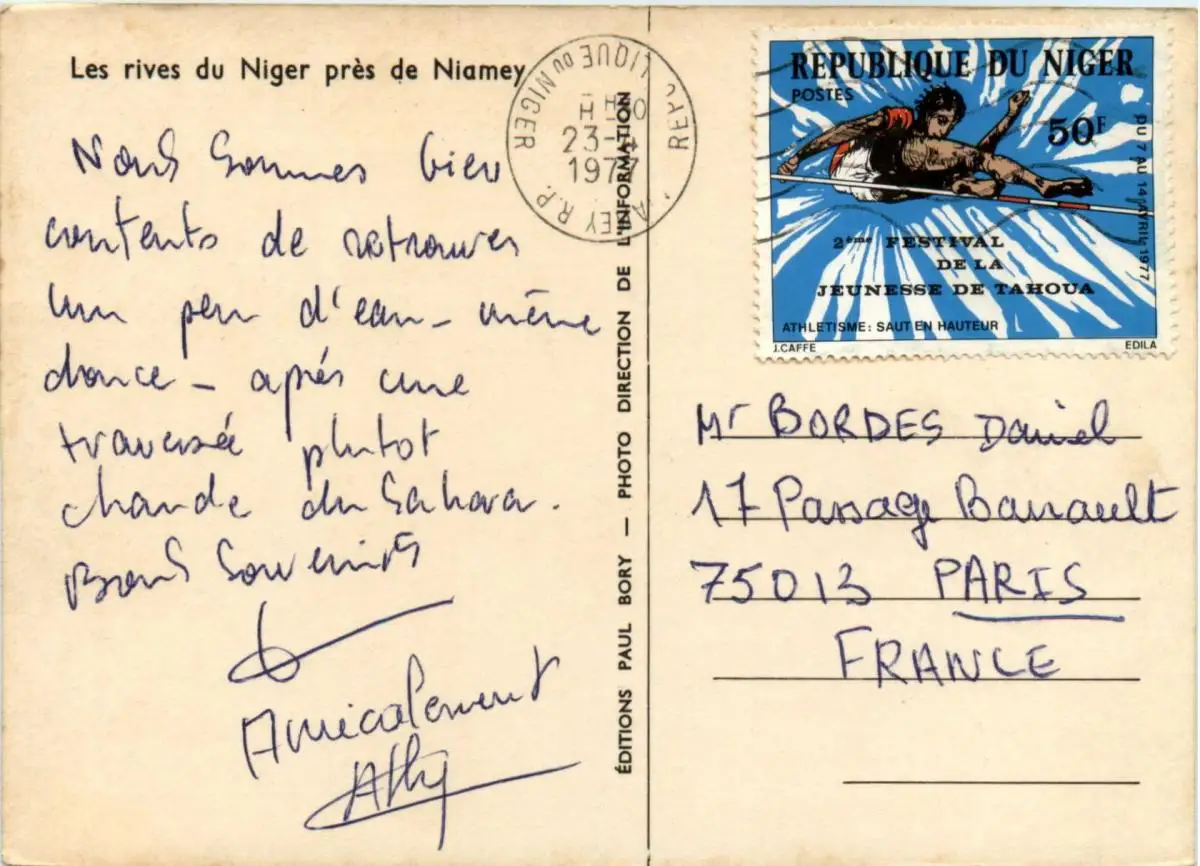 Les rives du Niger près de Niamey
Nous sommes bien
contents de retrouver
un peu d'eau - même
douce - après une
traversée plutot
chaude du Sahara.
Bons Souvenirs
Amicalement
ÉDITIONS PAUL BORY — PHOTO DIRECTION DE L'INFORMATION
LIQUE DU NIGER
23-4
1977
EY R.P.
REPUBLIQUE DU NIGER
POSTES
50F
DU 7 AU 14 AVRIL 1977
2ème FESTIVAL
DE LA
JEUNESSE DE TAHOUA
ATHLETISME: SAUT EN HAUTEUR
J.CAFFE
EDILA
Mr BORDES Daniel
17 Passage Barrault
75013 PARIS
FRANCE